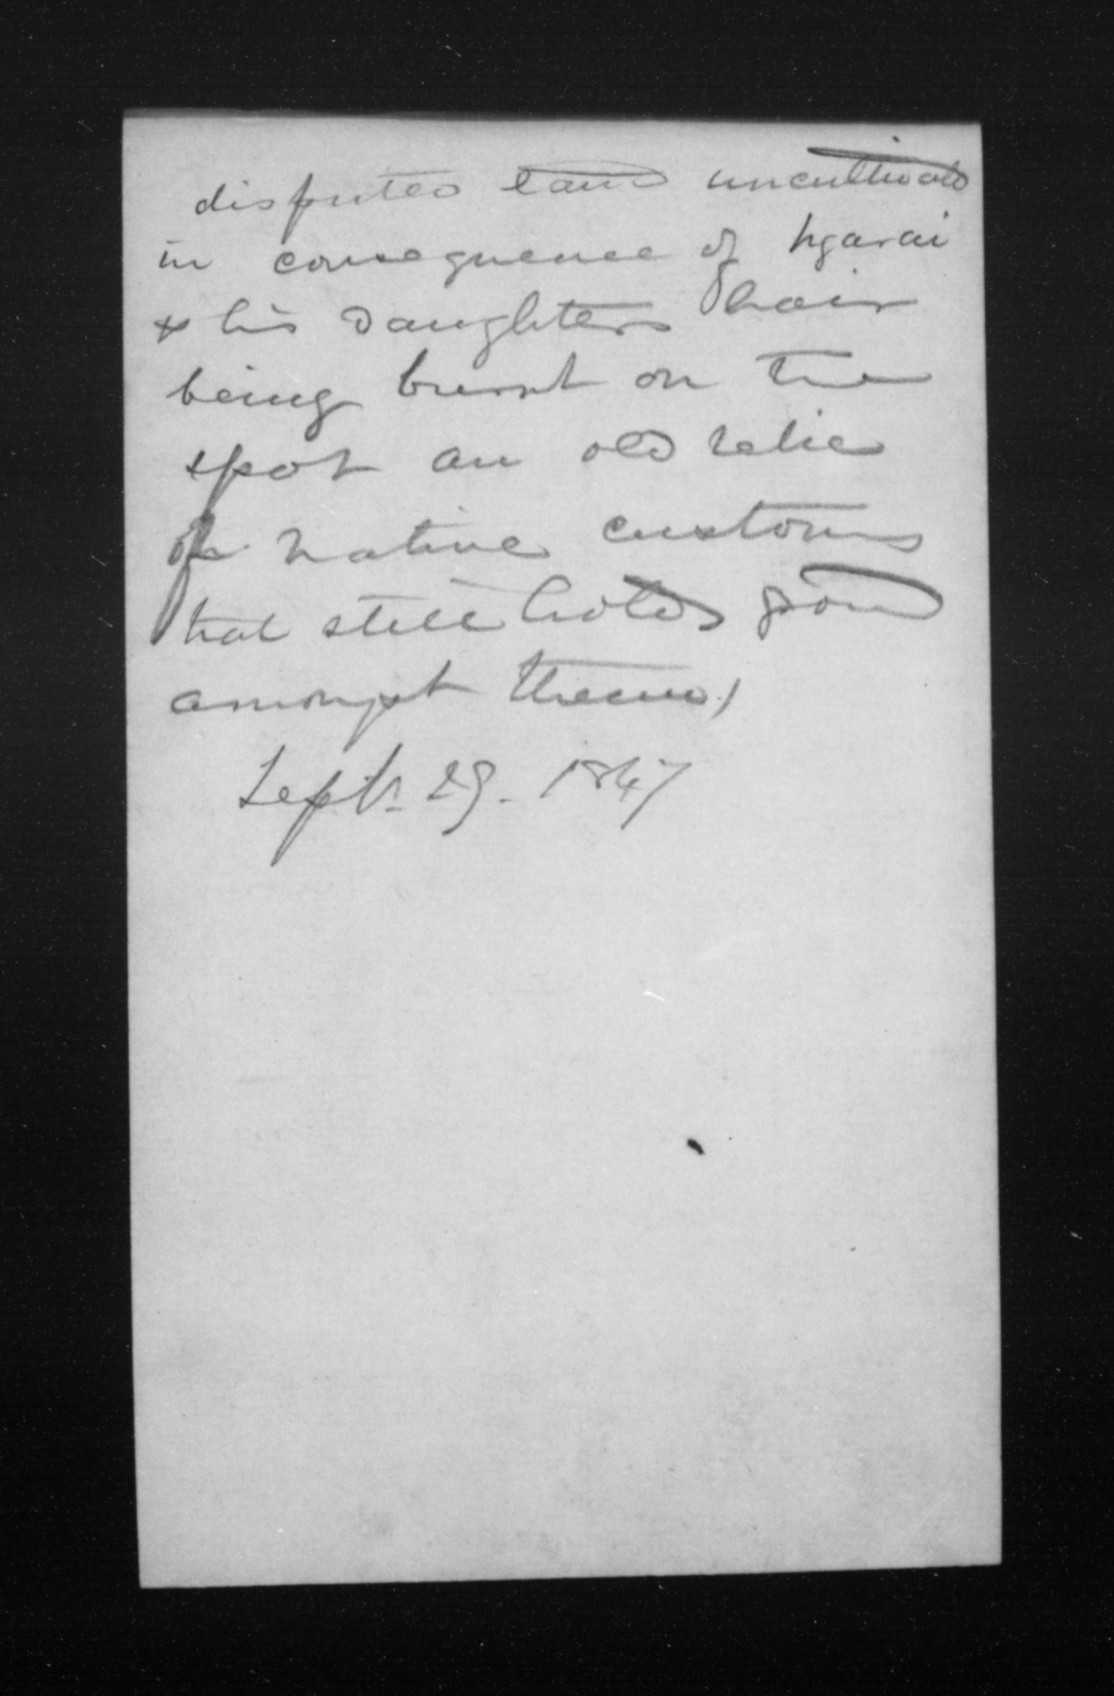 disputed land uncultivated
in consequence of Ngarai
& his daughters hair
being burnt on the
spot an old relic
of native customs
that still holds good
amongst them)
Septr. 29. 1847